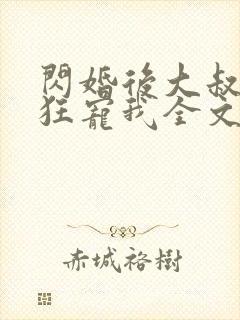 閃婚後大叔
狂寵我全文
赤城裕樹